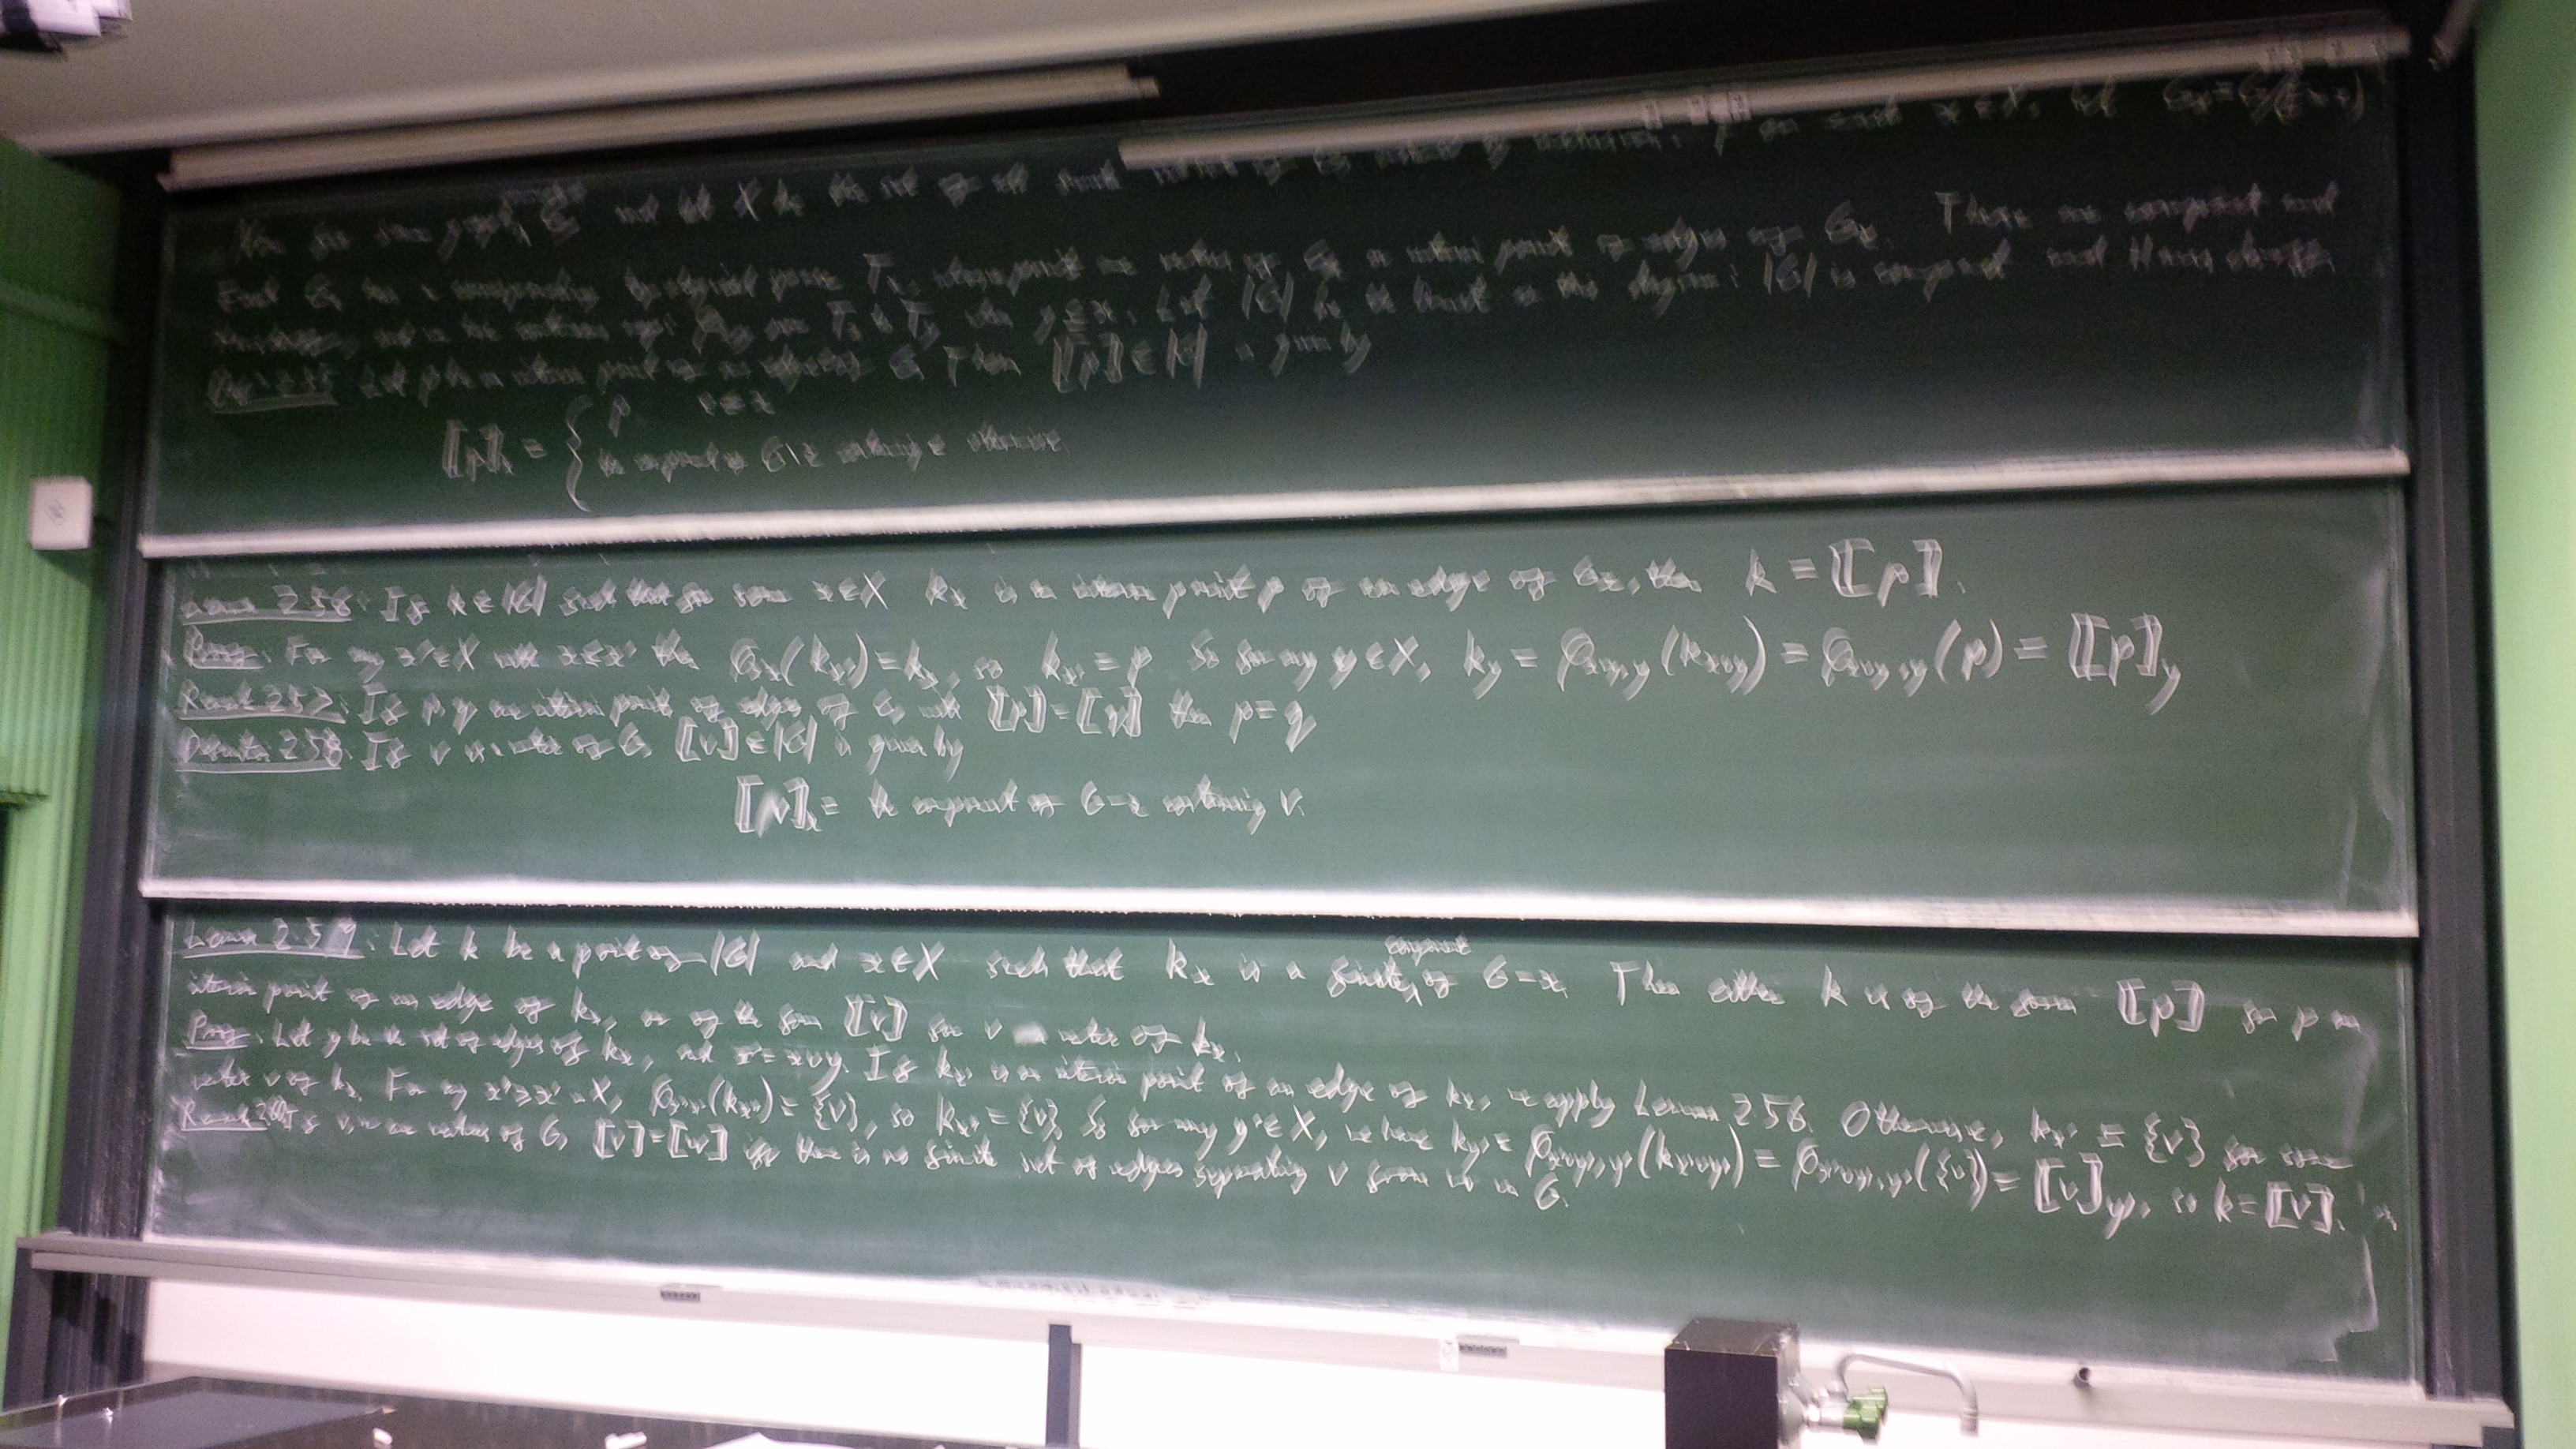 and let X be the set of all finite of G, ordered by For each x∈X, let
Each G_x has a corresponding topological space T_x, whose points are vertices of G_x or interior points of edges of G_x. These are compact and
Hausdorff, and we have maps from T_x to T_y when y≤x. Let |G| be the limit of this diagram: |G| is compact and Hausdorff
Let p be an interior point of an edge of G. Then ⟦p⟧∈|G| is given by
⟦p⟧ₓ = { p
the component of G\x containing e otherwise
Lemma 2.56: If k∈|G| such that for some x∈X kₓ is an interior point p of an edge of Gₓ, then k = ⟦p⟧.
Proof: For any x'∈X with x≤x' then (kₓ')=kₓ, so kₓ' = p. So for any y∈X, k_y = φ_{x∨y,y}(k_{x∨y}) = φ_{x∨y,y}(p) = ⟦p⟧_y
Remark 2.57: If p, q are interior points of edges of G with ⟦p⟧=⟦q⟧ then p=q
Definition 2.58: If v is a vertex of G, ⟦v⟧∈|G| is given by
⟦v⟧ₓ = the component of G-x containing v.
Lemma 2.59: Let k be a point of |G| and x∈X such that kₓ is a finite component of G-x. Then either k is of the form ⟦p⟧ for p an
interior point of an edge of kₓ, or of the form ⟦v⟧ for v a vertex of kₓ.
Proof: Let y be the set of edges of kₓ, and x'=x∨y. If kₓ' is an interior point of an edge of kₓ, we apply Lemma 2.56. Otherwise, kₓ' = {v} for some
vertex v of kₓ. For any x''≥x' in X, φ_{x'',x'}(kₓ'')={v}, so kₓ''={v}. So for any y'∈X, we have k_y' = φ_{x'∨y',y'}(k_{x'∨y'}) = φ_{x'∨y',y'}({v}) = ⟦v⟧_y', so k=⟦v⟧.
Remark 2.60: If v, w are vertices of G, ⟦v⟧=⟦w⟧ iff there is no finite set of edges separating v from w in G.